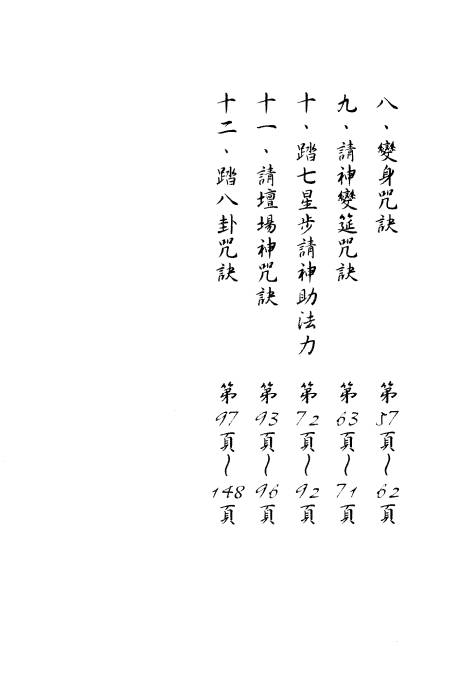 八、變身咒訣 第57頁~62頁
九、請神變筵咒訣 第63頁~71頁
十、踏七星步請神助法力 第72頁~92頁
十一、請壇場神咒訣 第93頁~96頁
十二、踏八卦咒訣 第97頁~148頁